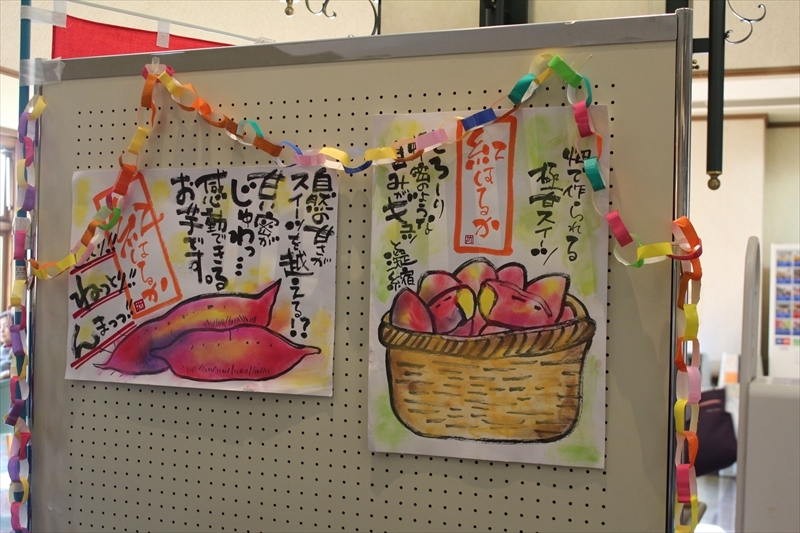 自然の甘さが
スイーツを越える!?
甘い蜜が
じゅわっ…
感動できる
お芋です。
紅はるか
ねっとり
んまっっ!!
畑で作られる
極上スイーツ
紅はるか
とろ〜り
蜜のような
甘みがギュッ
と凝縮